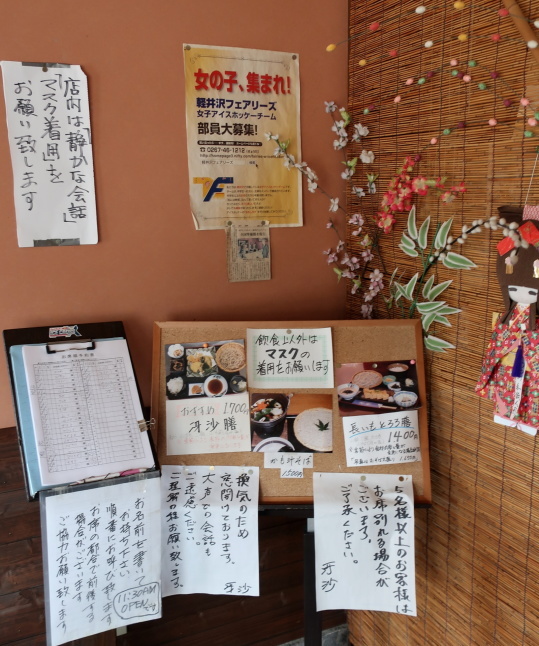 店内は「静かな会話」
「マスク着用」を
お願い致します
女の子、集まれ!
軽井沢フェアリーズ
女子アイスホッケーチーム
部員大募集!
☎0267-46-1212
軽井沢フェアリーズ
飲食以外は
マスクの
着用をお願いします
おすすめ 1700円
牙沙膳
かも汁そば
1500円
長いもとろろ膳
1400円
お名前を書いて
お待ち下さい
順番にお呼び致します
お席の都合で前後する
場合がございます
ご協力お願い致します
11:30AM
OPEN
換気のため
窓開けております。
大声での会話も
ご遠慮ください。
ご理解の程お願い致します。
牙沙
5名様以上のお客様は
お席別れる場合が
ございます。
ご了承ください。
牙沙